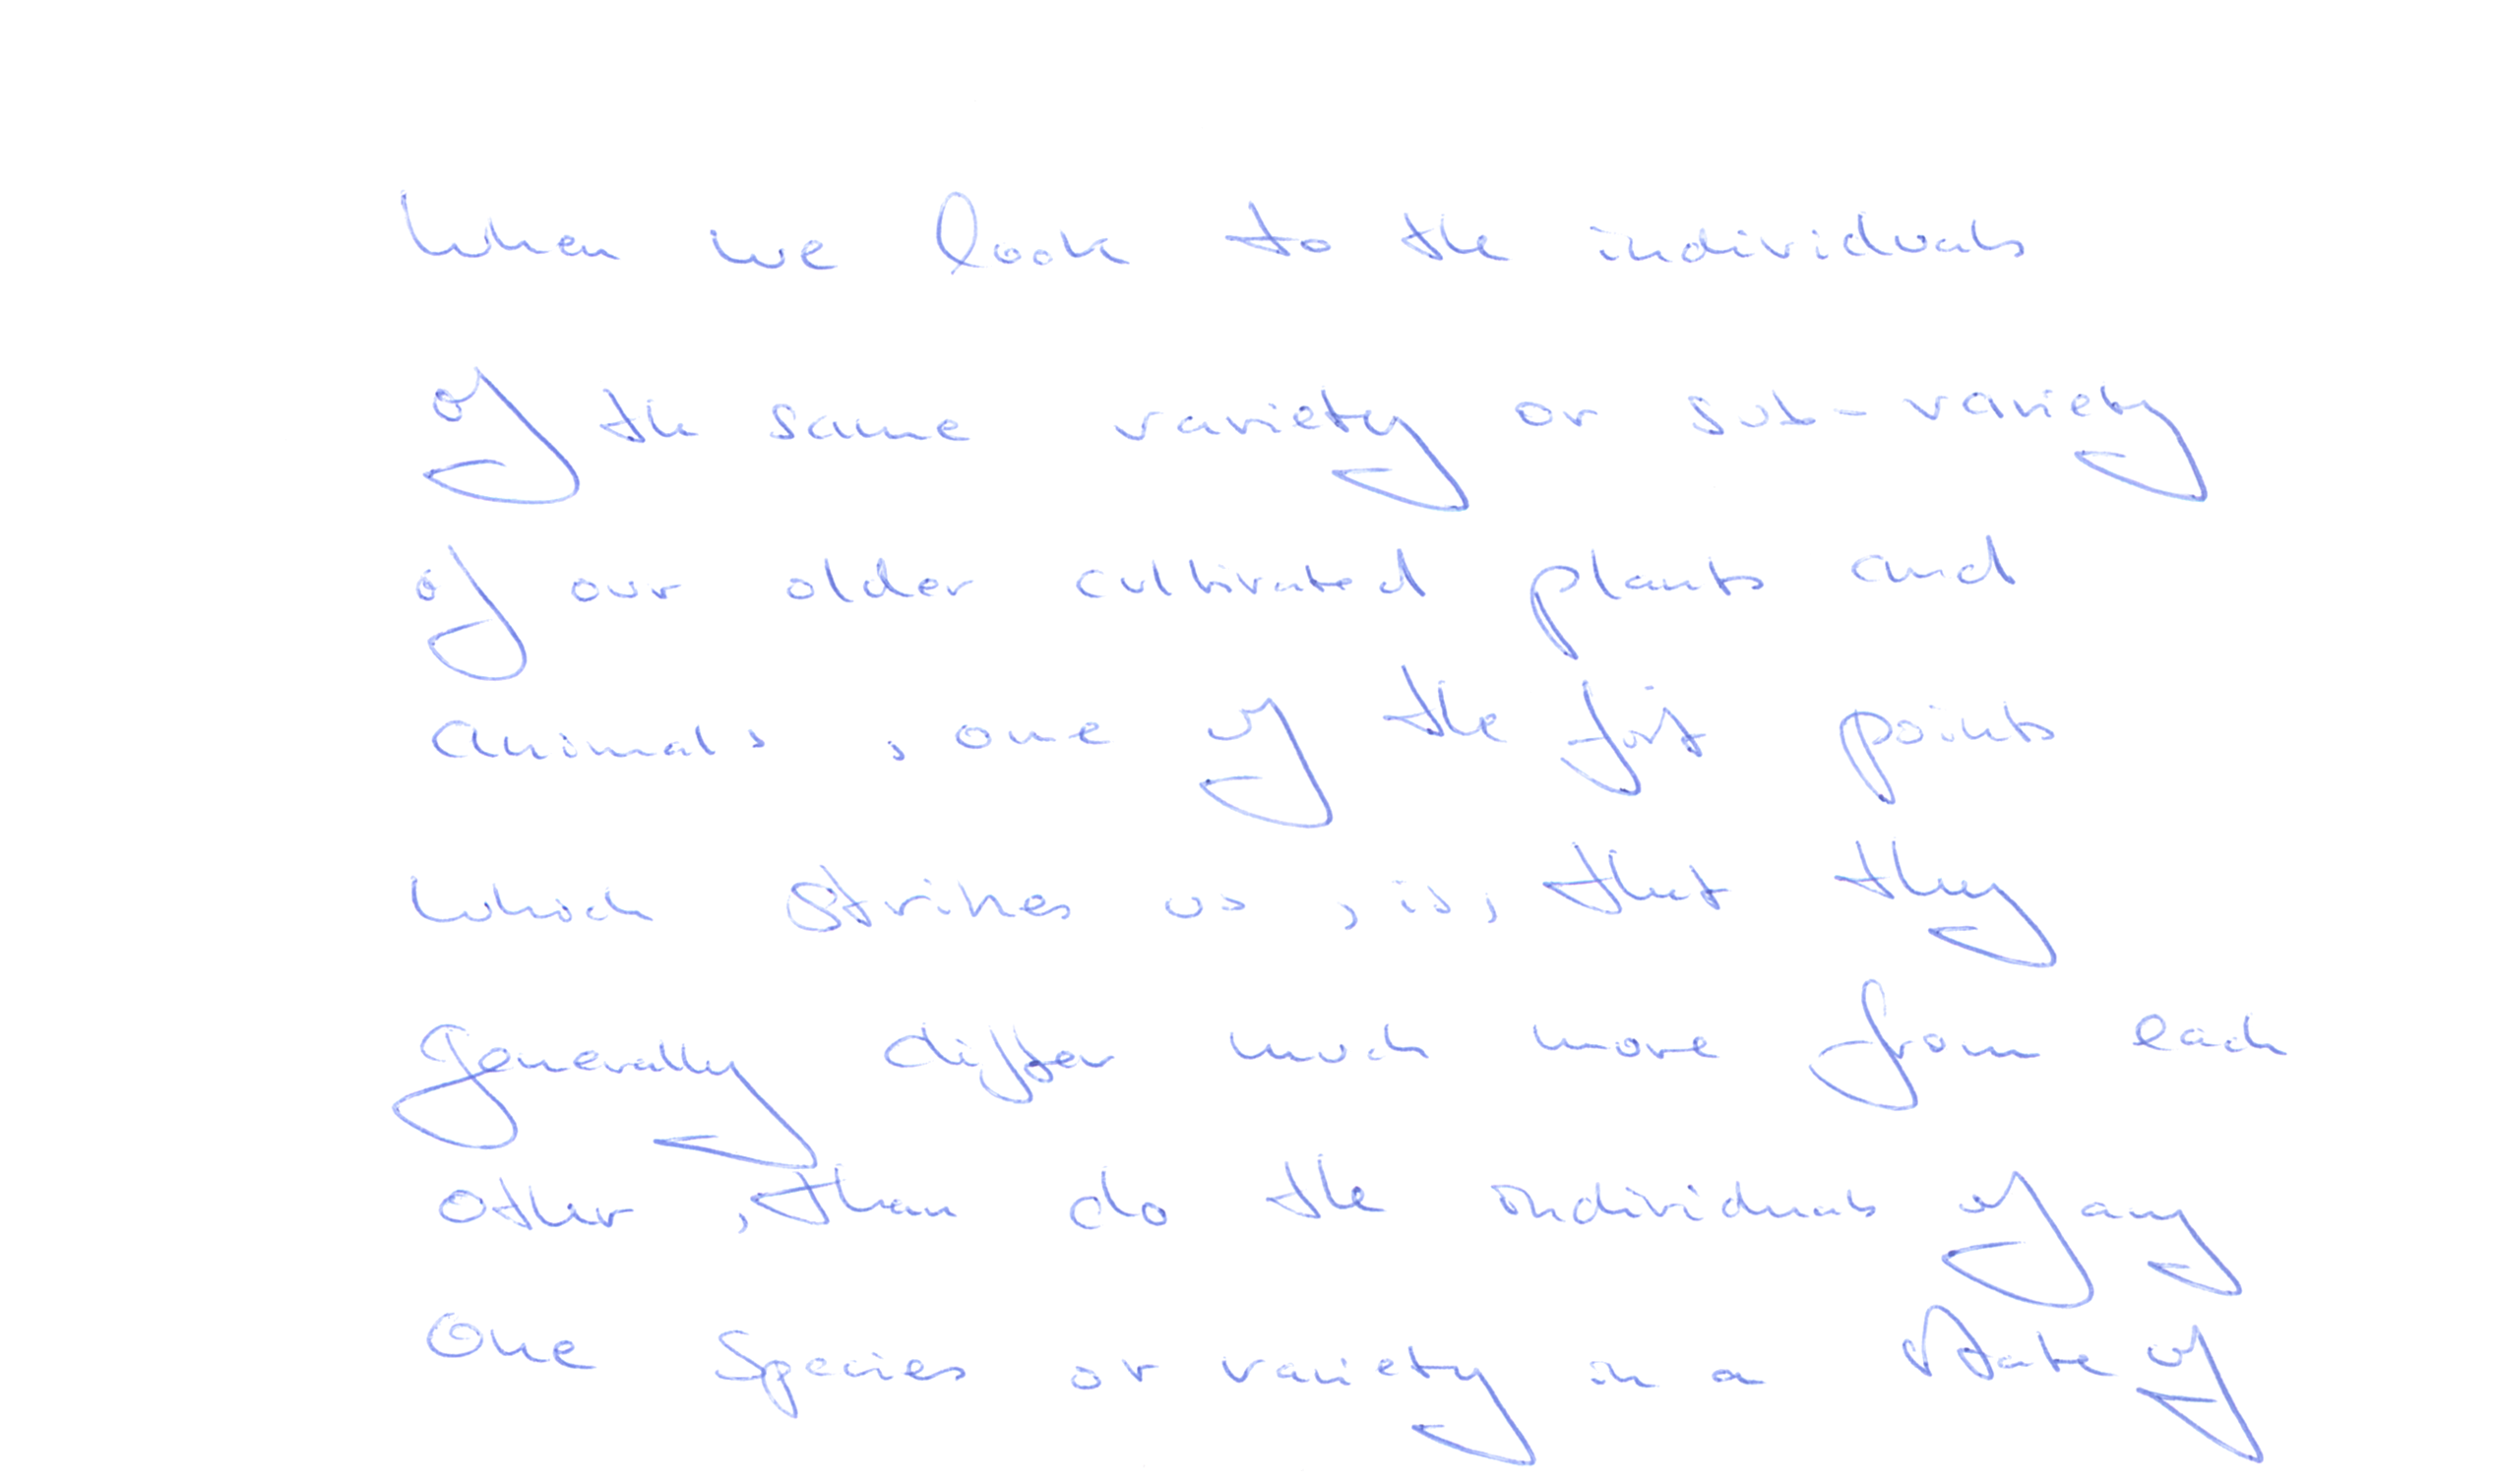 When we look to the individuals
of the same variety or sub-variety
of our older cultivated plants and
animals, one of the first points
which strikes us, is, that they
generally differ much more from each
other, than do the individuals of any
one species or variety in a state of